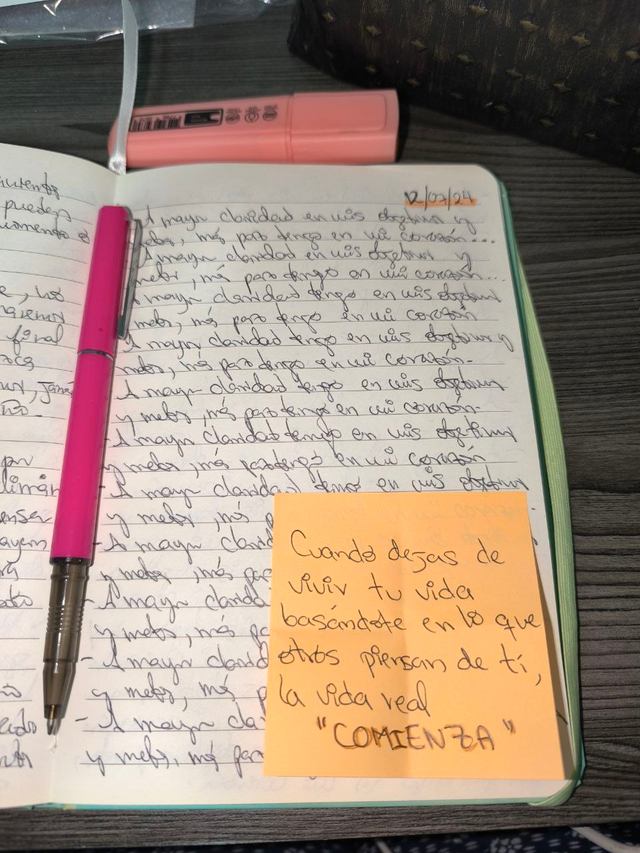 pueden
final
12/07/24
A mayor claridad en mis objetivos y
metas, más paz tengo en mi corazón...
A mayor claridad en mis objetivos y
metas, más paz tengo en mi corazón...
A mayor claridad tengo en mis objetivos
metas, más paz tengo en mi corazón
A mayor claridad tengo en mis objetivos y
metas, más paz tengo en mi corazón.
A mayor claridad tengo en mis objetivos
y metas, más paz tengo en mi corazón.
- A mayor claridad tengo en mis objetivos
y metas, más paz tengo en mi corazón
- A mayor claridad tengo en mis objetivos
y metas, más
- A mayor clarid
y metas, más paz
- A mayor clarida
y metas, más pa
- A mayor clarid
y metas, más p
- A mayor cla
y metas, más paz
Cuando dejas de
vivir tu vida
basándote en lo que
otros piensan de tí,
la vida real
"COMIENZA"